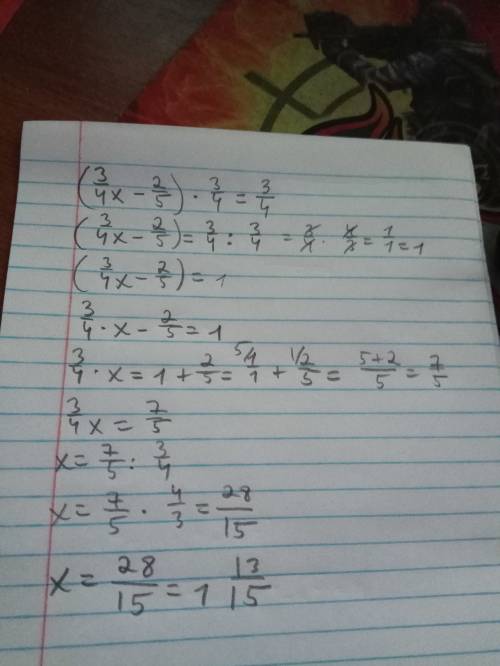 (3/4 x - 2/5) · 3/4 = 3/4
(3/4 x - 2/5) = 3/4 : 3/4 = 3/4 · 4/3 = 1/1 = 1
(3/4 x - 2/5) = 1
3/4 · x - 2/5 = 1
3/4 · x = 1 + 2/5 = 5/ 1/1 + 1/ 2/5 = 5+2/5 = 7/5
3/4 x = 7/5
x = 7/5 : 3/4
x = 7/5 · 4/3 = 28/15
x = 28/15 = 1 13/15